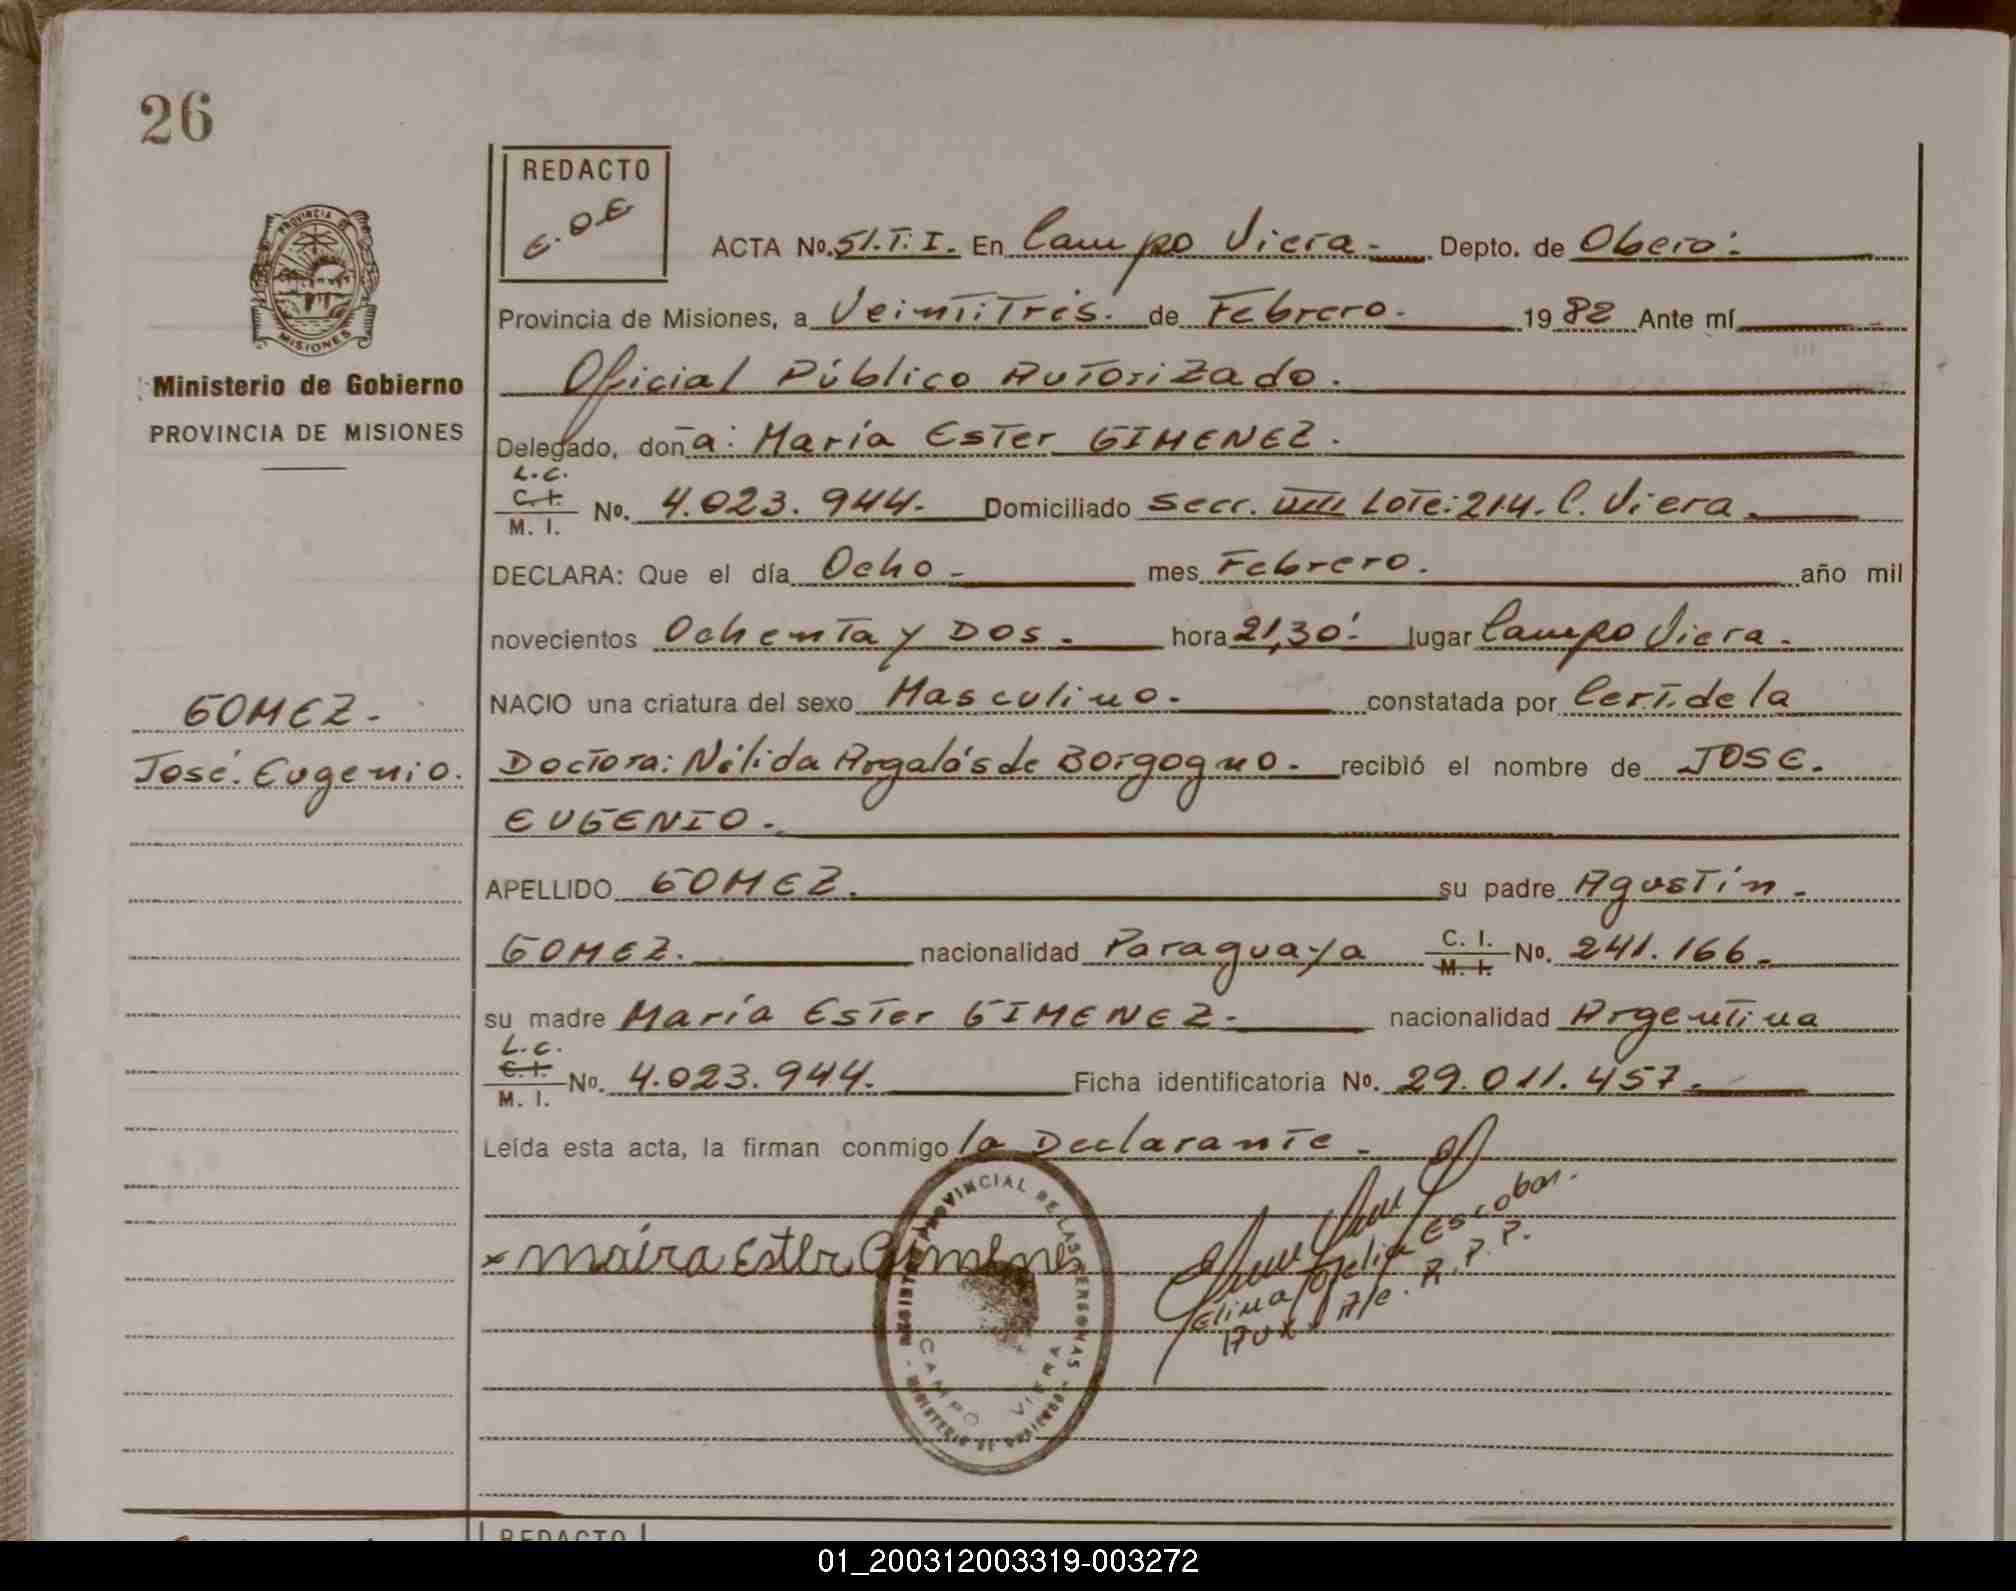 26
REDACTO
E.O.E
PROVINCIA
MISIONES
Ministerio de Gobierno
PROVINCIA DE MISIONES
ACTA No. 51.T.I. En Campo Viera.- Depto. de Oberá.
Provincia de Misiones, a Veintitrés. de Febrero. 1982 Ante mí
Oficial Público Autorizado.
Delegado, doña: María Ester GIMENEZ.
L.C.
C. I.
M. I. No. 4.023.944. Domiciliado Secc. VIII Lote: 214. C. Viera.
DECLARA: Que el día Ocho - mes Febrero. año mil
novecientos Ochenta y Dos. hora 21,30' lugar Campo Viera.
NACIO una criatura del sexo Masculino. constatada por Cert. de la
GOMEZ.
José. Eugenio.
Doctora: Nélida Argalás de Borgogno. recibió el nombre de JOSE.
EUGENIO.
APELLIDO GOMEZ. su padre Agustín.
GOMEZ. nacionalidad Paraguaya C. I. M. I. No. 241.166.
su madre María Ester GIMENEZ. nacionalidad Argentina
L.C.
C. I.
M. I. No. 4.023.944. Ficha identificatoria No. 29.011.457.
Leída esta acta, la firman conmigo la Declarante.
x maira Ester Gimenes
Elina Ofelia Escobar.
Aux. A/c. R.P.P.
REGISTRO PROVINCIAL DE LAS PERSONAS
CAMPO VIERA
MINISTERIO DE GOBIERNO
REDACTO
01_200312003319-003272